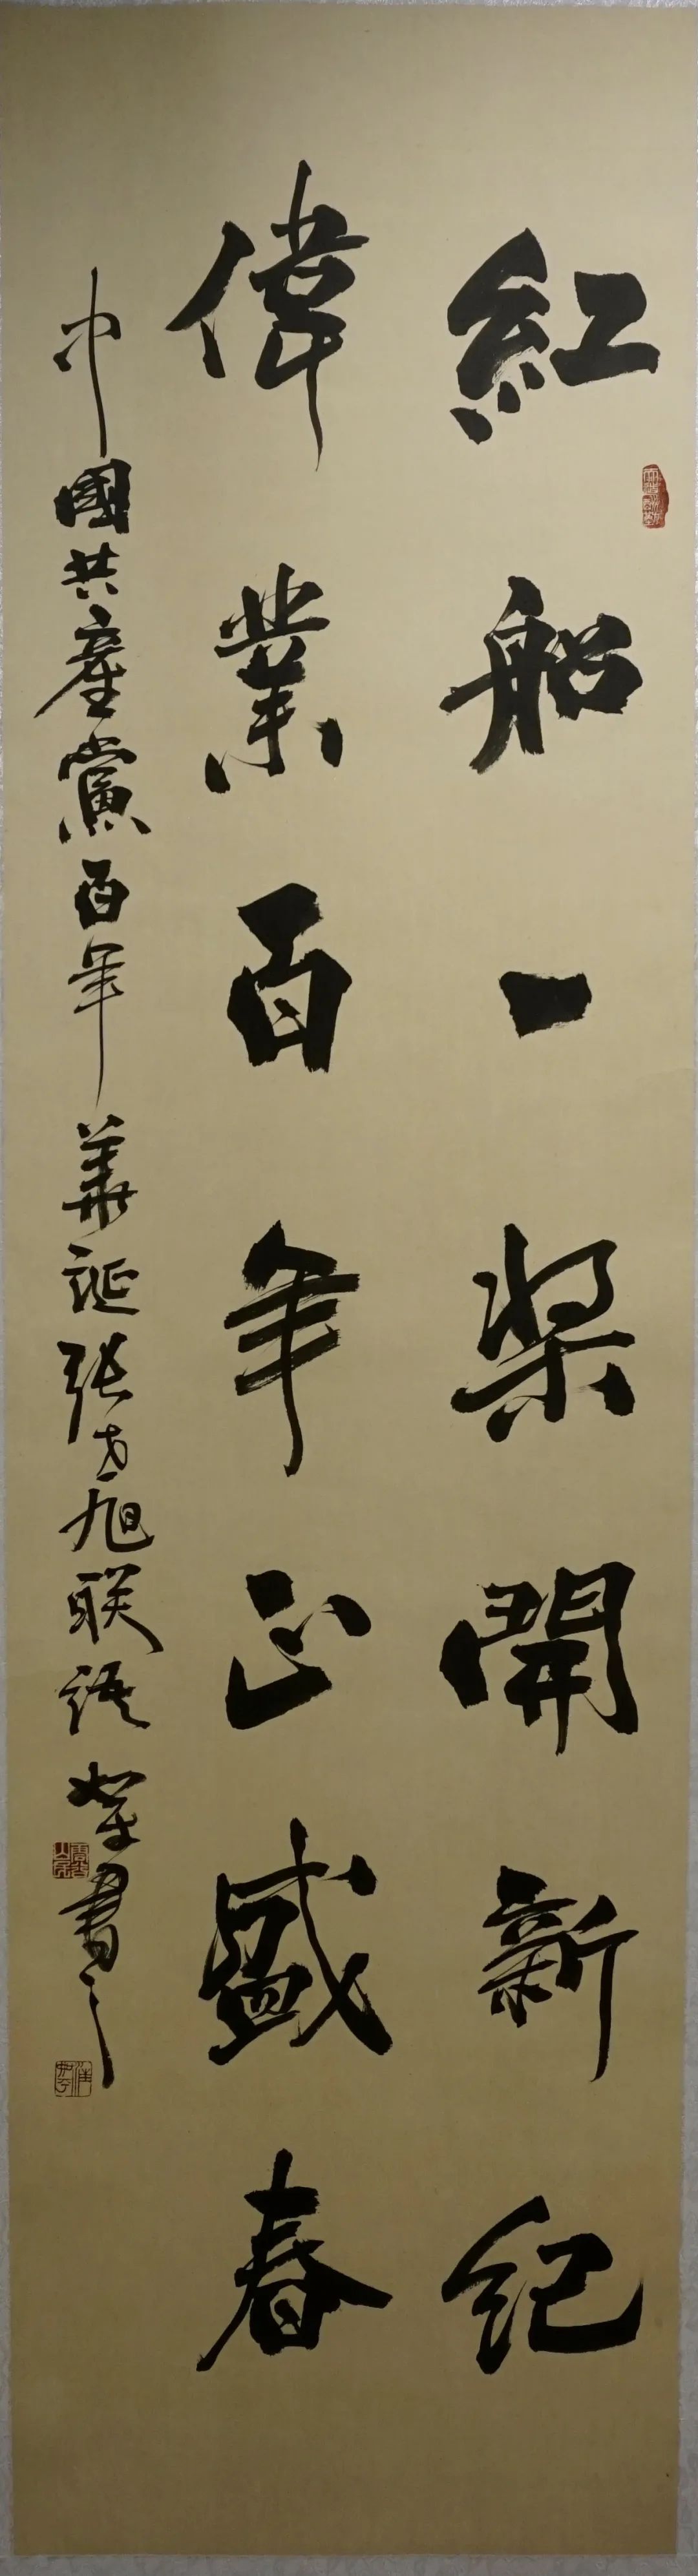 紅船一槳開新纪
偉業百年正盛春
中國共產黨百年華誕張志旭联語 書之